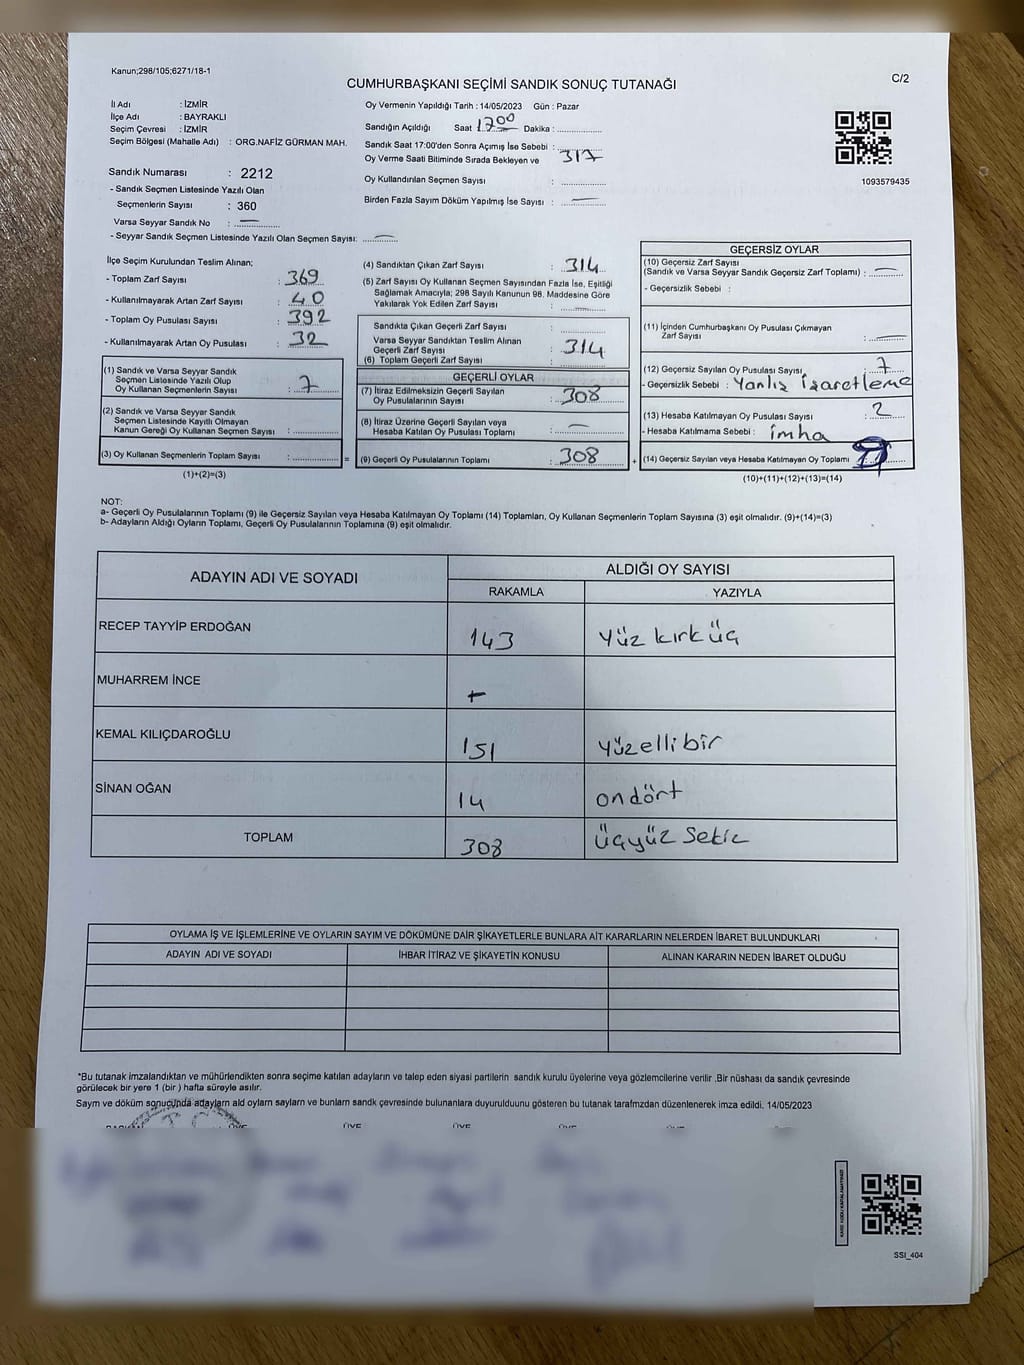 Kanun;298/105;6271/18-1
CUMHURBAŞKANI SEÇİMİ SANDIK SONUÇ TUTANAĞI
C/2
İl Adı : İZMİR
İlçe Adı : BAYRAKLI
Seçim Çevresi : İZMİR
Seçim Bölgesi (Mahalle Adı) : ORG.NAFİZ GÜRMAN MAH.
Sandık Numarası : 2212
- Sandık Seçmen Listesinde Yazılı Olan
Seçmenlerin Sayısı : 360
Varsa Seyyar Sandık No : —
- Seyyar Sandık Seçmen Listesinde Yazılı Olan Seçmen Sayısı: —
Oy Vermenin Yapıldığı Tarih : 14/05/2023 Gün : Pazar
Sandığın Açıldığı Saat 1700 Dakika : ..............
Sandık Saat 17:00'den Sonra Açımış İse Sebebi : ..............
Oy Verme Saati Bitiminde Sırada Bekleyen ve 317
Oy Kullandırılan Seçmen Sayısı : ..............
Birden Fazla Sayım Döküm Yapılmış İse Sayısı : —
1093579435
İlçe Seçim Kurulundan Teslim Alınan;
- Toplam Zarf Sayısı : 369
- Kullanılmayarak Artan Zarf Sayısı : 40
- Toplam Oy Pusulası Sayısı : 392
- Kullanılmayarak Artan Oy Pusulası : 32
(1) Sandık ve Varsa Seyyar Sandık
Seçmen Listesinde Yazılı Olup
Oy Kullanan Seçmenlerin Sayısı : 7
(2) Sandık ve Varsa Seyyar Sandık
Seçmen Listesinde Kayıtlı Olmayan
Kanun Gereği Oy Kullanan Seçmen Sayısı : ..............
(3) Oy Kullanan Seçmenlerin Toplam Sayısı : .............. =
(1)+(2)=(3)
(4) Sandıktan Çıkan Zarf Sayısı : 314
(5) Zarf Sayısı Oy Kullanan Seçmen Sayısından Fazla İse, Eşitliği
Sağlamak Amacıyla; 298 Sayılı Kanunun 98. Maddesine Göre
Yakılarak Yok Edilen Zarf Sayısı : —
Sandıkta Çıkan Geçerli Zarf Sayısı : ..............
Varsa Seyyar Sandıktan Teslim Alınan
Geçerli Zarf Sayısı : 314
(6) Toplam Geçerli Zarf Sayısı : ..............
GEÇERLİ OYLAR
(7) İtiraz Edilmeksizin Geçerli Sayılan
Oy Pusulalarının Sayısı : 308
(8) İtiraz Üzerine Geçerli Sayılan veya
Hesaba Katılan Oy Pusulaları Toplamı : —
(9) Geçerli Oy Pusulalarının Toplamı : 308 +
GEÇERSİZ OYLAR
(10) Geçersiz Zarf Sayısı
(Sandık ve Varsa Seyyar Sandık Geçersiz Zarf Toplamı) : —
- Geçersizlik Sebebi :
(11) İçinden Cumhurbaşkanı Oy Pusulası Çıkmayan
Zarf Sayısı : —
(12) Geçersiz Sayılan Oy Pusulası Sayısı : 7
- Geçersizlik Sebebi : Yanlız işaretleme
(13) Hesaba Katılmayan Oy Pusulası Sayısı : 2
- Hesaba Katılmama Sebebi : imha
(14) Geçersiz Sayılan veya Hesaba Katılmayan Oy Toplamı :
(10)+(11)+(12)+(13)=(14)
NOT:
a- Geçerli Oy Pusulalarının Toplamı (9) ile Geçersiz Sayılan veya Hesaba Katılmayan Oy Toplamı (14) Toplamları, Oy Kullanan Seçmenlerin Toplam Sayısına (3) eşit olmalıdır. (9)+(14)=(3)
b- Adayların Aldığı Oyların Toplamı, Geçerli Oy Pusulalarının Toplamına (9) eşit olmalıdır.
ADAYIN ADI VE SOYADI
ALDIĞI OY SAYISI
RAKAMLA YAZIYLA
RECEP TAYYİP ERDOĞAN 143 Yüz kırk üç
MUHARREM İNCE
KEMAL KILIÇDAROĞLU 151 yüzellibir
SİNAN OĞAN 14 ondört
TOPLAM 308 üçyüz Sekiz
OYLAMA İŞ VE İŞLEMLERİNE VE OYLARIN SAYIM VE DÖKÜMÜNE DAİR ŞİKAYETLERLE BUNLARA AİT KARARLARIN NELERDEN İBARET BULUNDUKLARI
ADAYIN ADI VE SOYADI İHBAR İTİRAZ VE ŞİKAYETİN KONUSU ALINAN KARARIN NEDEN İBARET OLDUĞU
*Bu tutanak imzalandıktan ve mühürlendikten sonra seçime katılan adayların ve talep eden siyasi partilerin sandık kurulu üyelerine veya gözlemcilerine verilir .Bir nüshası da sandık çevresinde
görülecek bir yere 1 (bir ) hafta süreyle asılır.
Sayım ve döküm sonuçunda adayların ald oyların sayları ve bunların sandk çevresinde bulunanlara duyurulduunu gösteren bu tutanak tarafmzdan düzenlenerek imza edildi. 14/05/2023
ÜYE ÜYE ÜYE
SSI_404